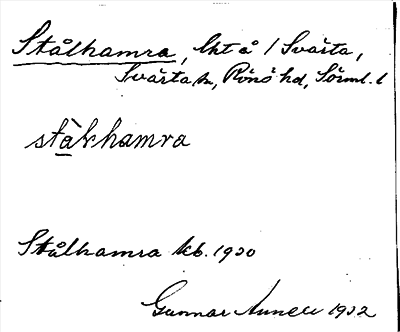 Stålhamra, lht å / Svärta,
Svärta sn, Rönö hd, Sörml. l
stàkhamra
Stålhamra kb. 1930
Gunnar 1932